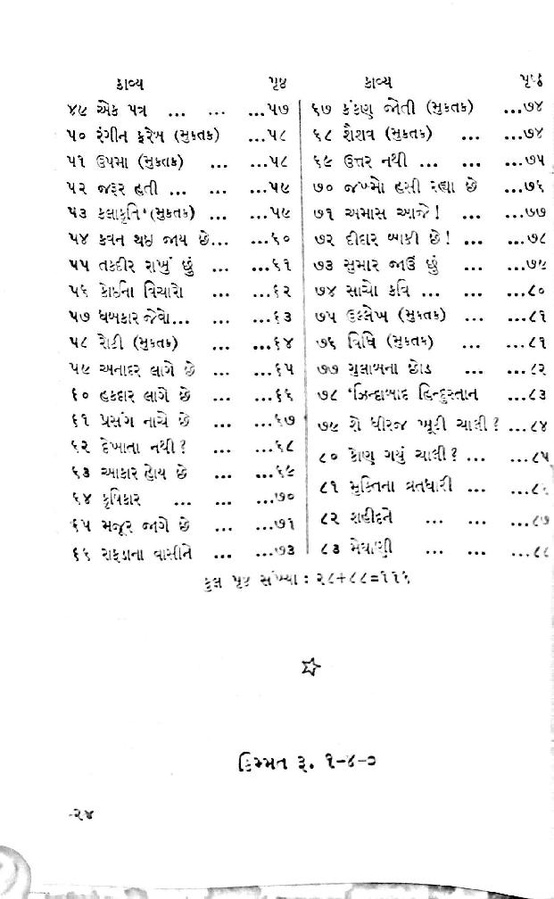 કાવ્ય પૃષ્ઠ
૪૯ એક પત્ર ... ... ...૫૭
૫૦ રંગીન ફરેબ (મુક્તક) ...૫૮
૫૧ ઉપમા (મુક્તક) ... ...૫૮
૫૨ જરૂર હતી ... ... ...૫૯
૫૩ કલાકૃતિ (મુક્તક) ... ...૫૯
૫૪ કવન થઇ જાય છે... ...૬૦
૫૫ તકદીર રાખું છું ... ...૬૧
૫૬ કોઈના વિચારો ... ...૬૨
૫૭ ધબકાર જેવો... ... ...૬૩
૫૮ રોટી (મુક્તક) ... ...૬૪
૫૯ અનાદર લાગે છે ... ...૬૫
૬૦ હકદાર લાગે છે ... ...૬૬
૬૧ પ્રસંગ નાચે છે ... ...૬૭
૬૨ દેખાતા નથી? ... ...૬૮
૬૩ આકાર હોય છે ... ...૬૯
૬૪ કૃષિકાર ... ... ...૭૦
૬૫ મજૂર જાગે છે ... ...૭૧
૬૬ રાફડાના વાસીને ... ...૭૩
કાવ્ય પૃષ્ઠ
૬૭ કંકણ જોતી (મુક્તક) ...૭૪
૬૮ શૈશવ (મુક્તક) ... ...૭૪
૬૯ ઉત્તર નથી ... ... ...૭૫
૭૦ જખ્મો હસી રહ્યા છે ...૭૬
૭૧ અમાસ આજે! ... ...૭૭
૭૨ દીદાર બાકી છે! ... ...૭૮
૭૩ સુમાર જાઉં છું ... ...૭૯
૭૪ સાચો કવિ ... ... ...૮૦
૭૫ ઉલ્લેખ (મુક્તક) ... ...૮૧
૭૬ વિધિ (મુક્તક) ... ...૮૧
૭૭ ગુલાબના છોડ ... ...૮૨
૭૮ 'ઝિન્દાબાદ હિન્દુસ્તાન ...૮૩
૭૯ શેં ધીરજ ખૂટી ચાલી? ...૮૪
૮૦ કોણ ગયું ચાલી? ... ...૮૫
૮૧ મુક્તિના વ્રતધારી ... ...૮
૮૨ શહીદને ... ... ...૮૭
૮૩ મેઘાણી ... ... ...૮૮
કુલ પૃષ્ઠ સંખ્યા : ૨૮+૮૮=૧૧૬
કિમ્મત રૂ. ૧-૪-૦
૨૪